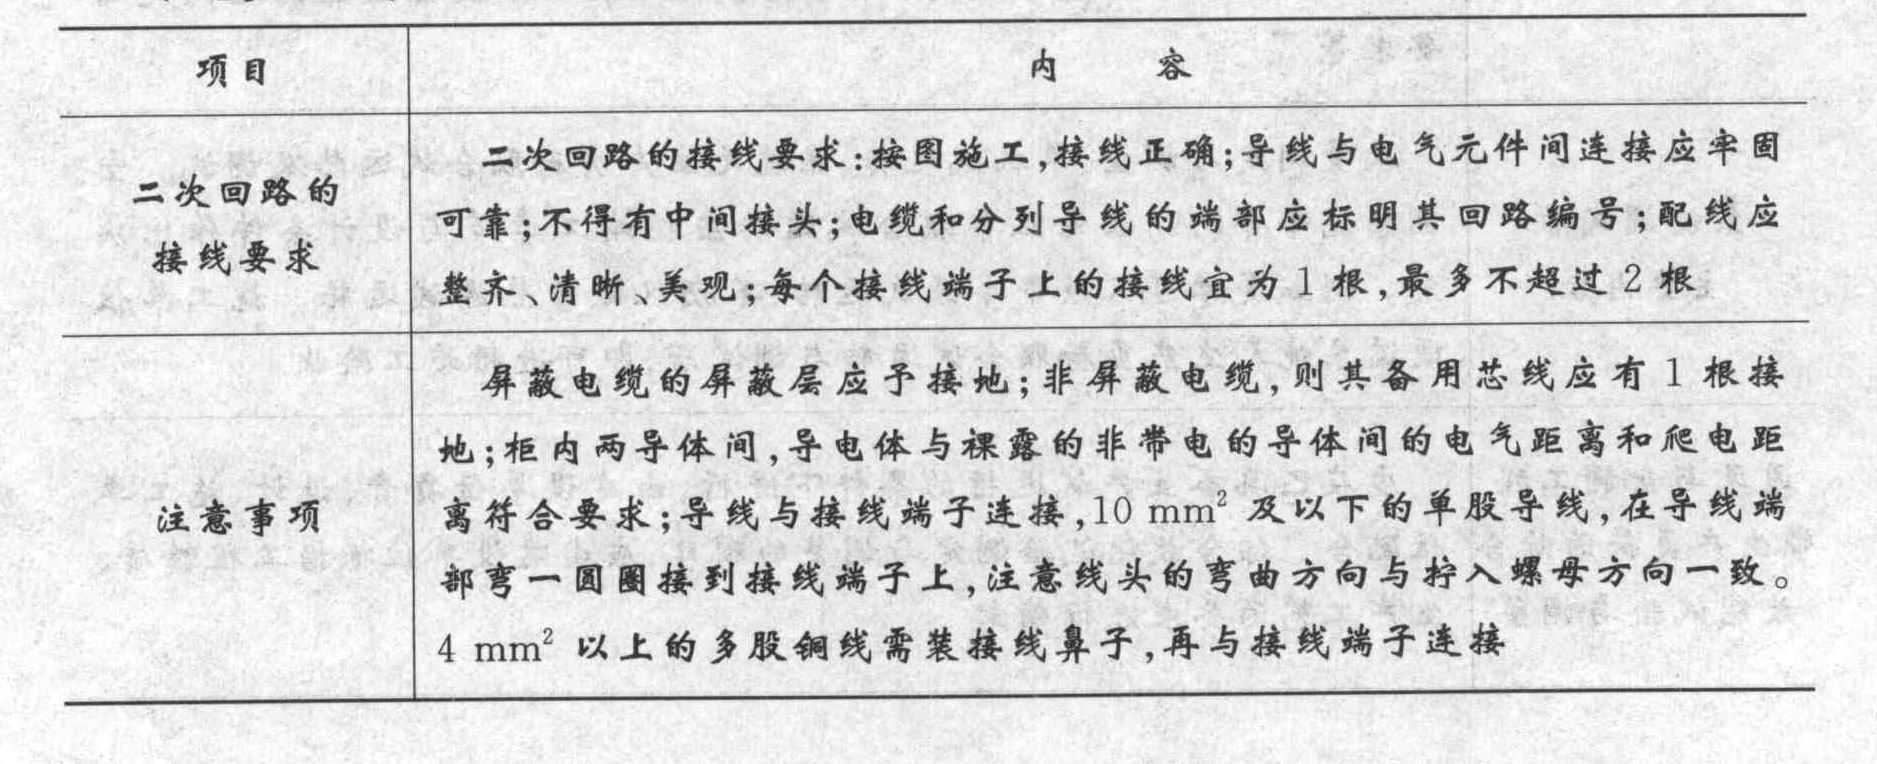 项目
内容
二次回路的
接线要求
二次回路的接线要求:按图施工,接线正确;导线与电气元件间连接应牢固
可靠;不得有中间接头;电缆和分列导线的端部应标明其回路编号;配线应
整齐、清晰、美观;每个接线端子上的接线宜为1根,最多不超过2根
注意事项
屏蔽电缆的屏蔽层应予接地;非屏蔽电缆,则其备用芯线应有1根接
地;柜内两导体间,导电体与裸露的非带电的导体间的电气距离和爬电距
离符合要求;导线与接线端子连接,10 mm²及以下的单股导线,在导线端
部弯一圆圈接到接线端子上,注意线头的弯曲方向与拧入螺母方向一致。
4 mm²以上的多股铜线需装接线鼻子,再与接线端子连接